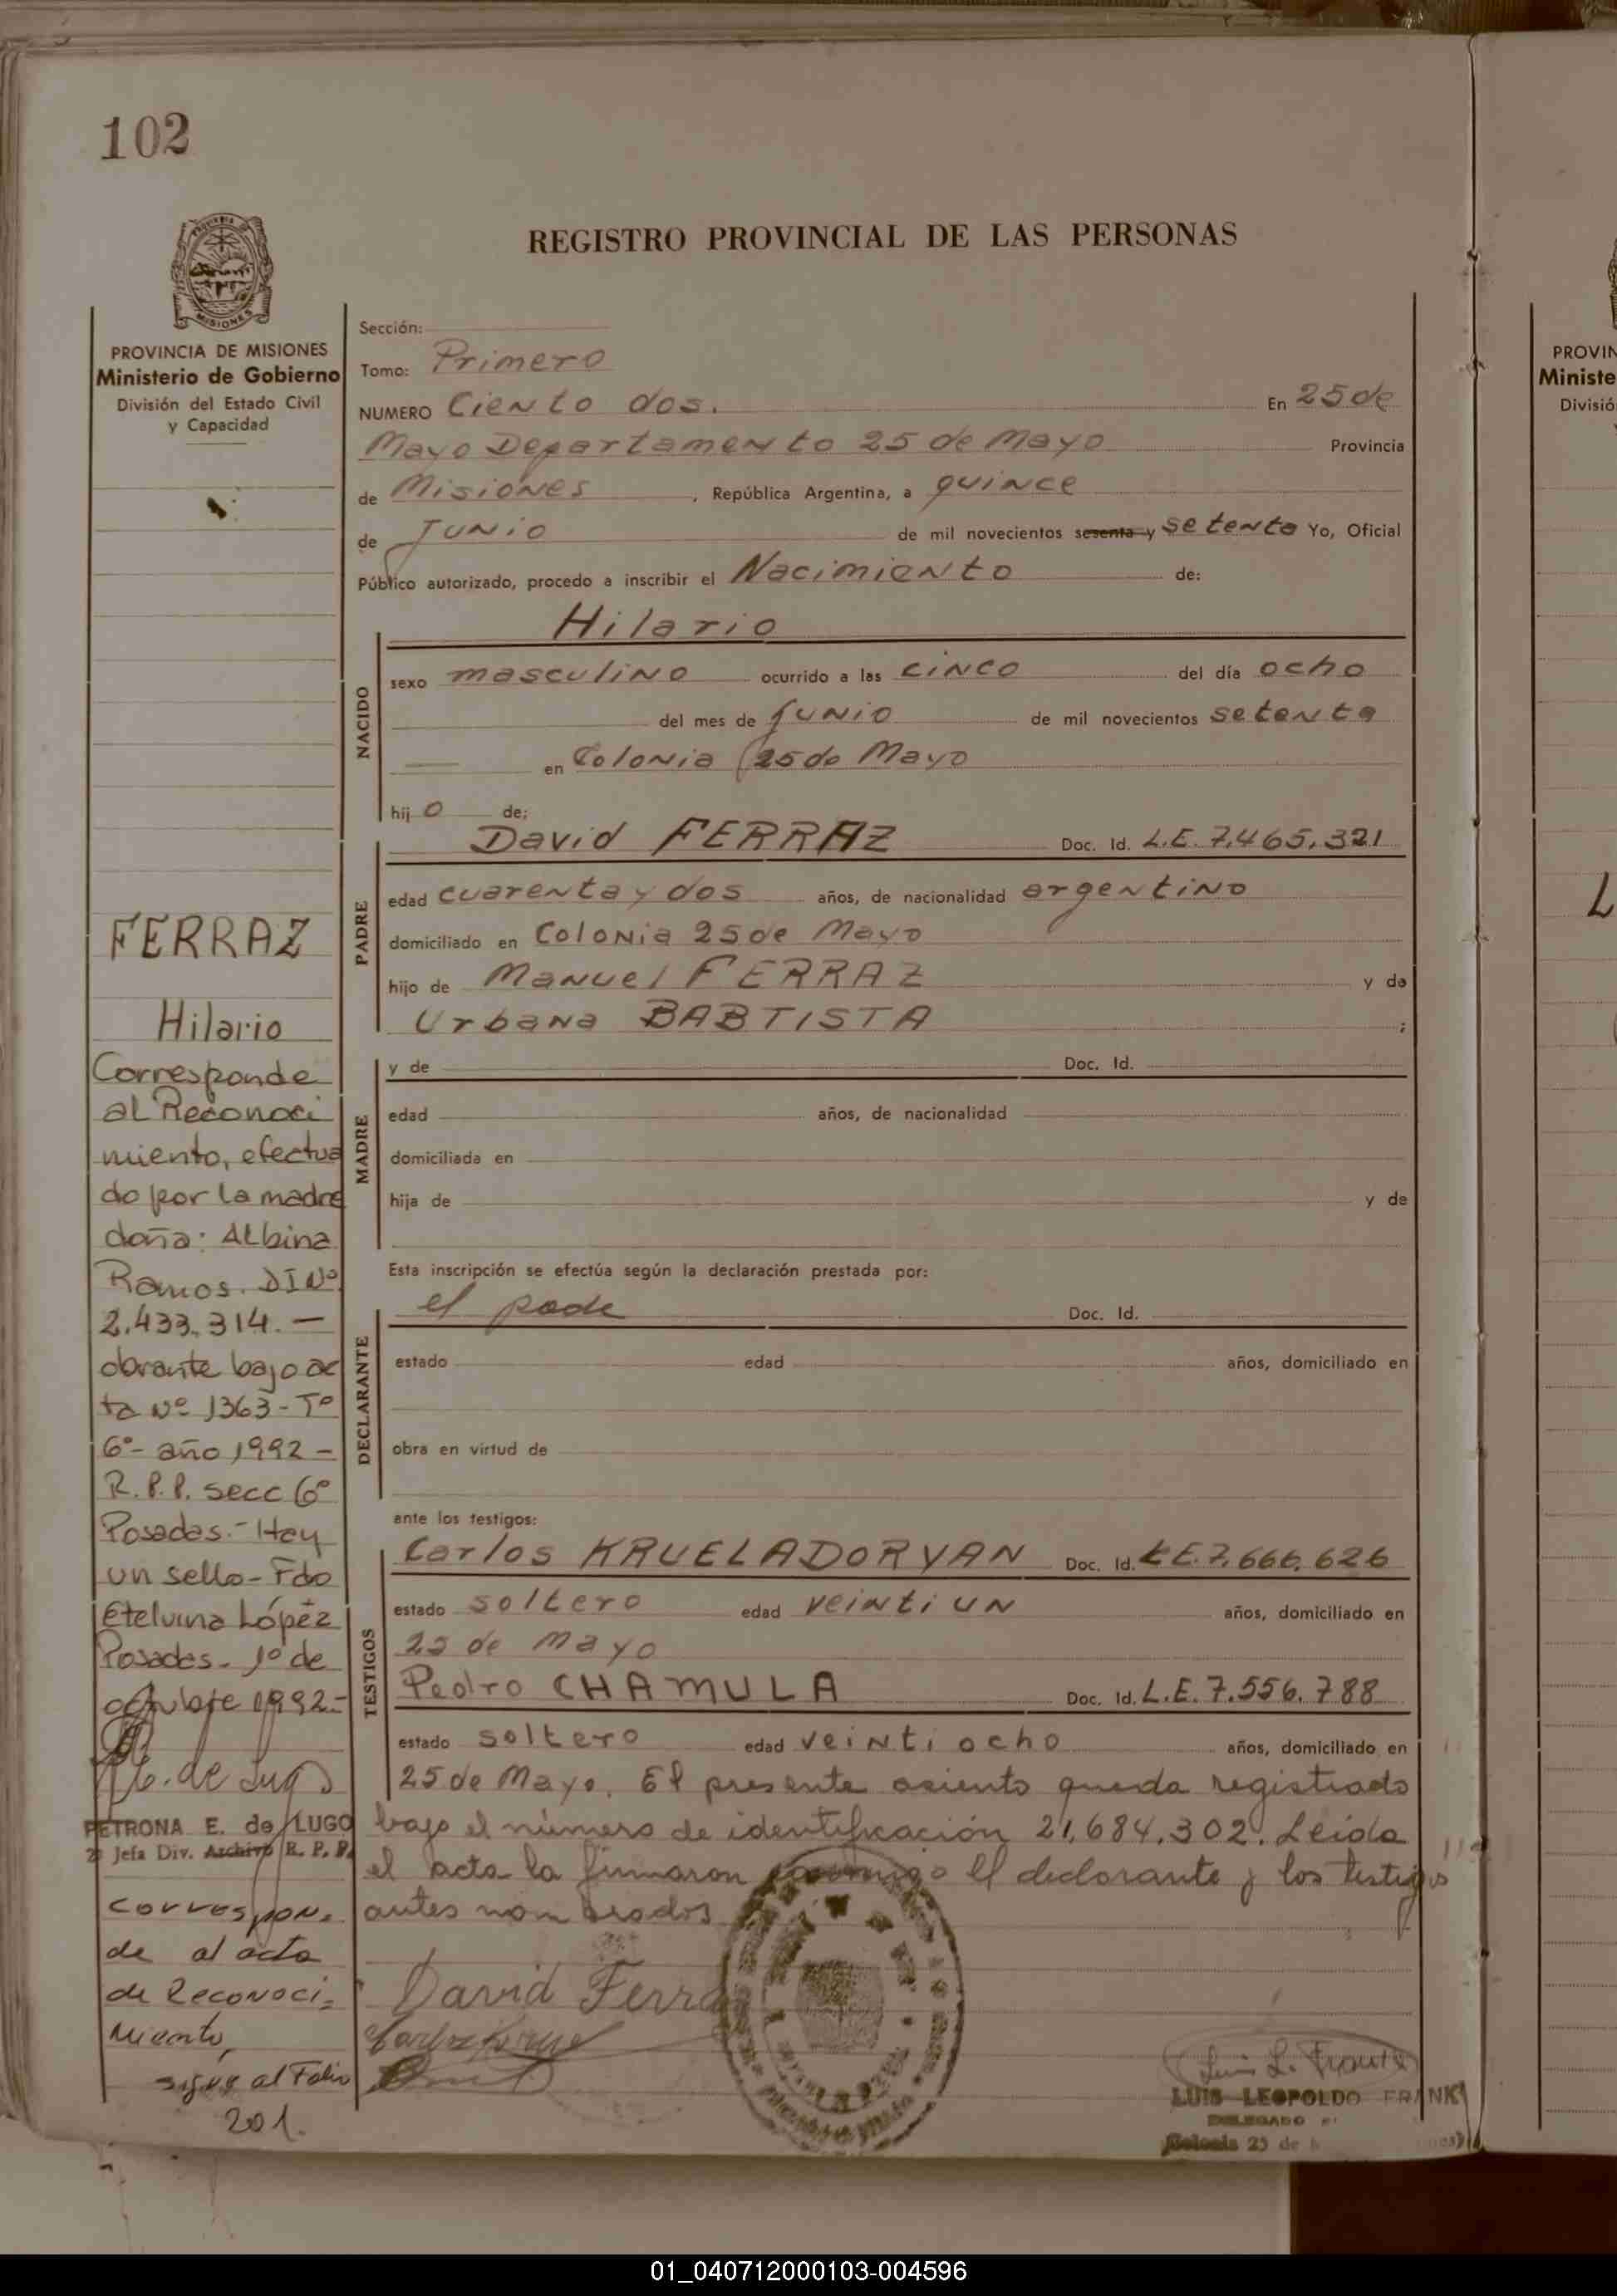 102
REGISTRO PROVINCIAL DE LAS PERSONAS
MISIONES
PROVINCIA DE MISIONES
Ministerio de Gobierno
División del Estado Civil
y Capacidad
FERRAZ
Hilario
Corresponde
al Reconoci
miento, efectua
do por la madre
doña: Albina
Ramos. DI Nº
2.433.314.—
obrante bajo ac
ta Nº 1363-Tº
6º- año 1992-
R.P.P. secc 6º
Posadas.- Hay
un sello- Fdo
Etelvina López
Posadas- 1º de
octubre 1992.-
E. de Lugo
PETRONA E. de LUGO
Jefa Div. Archivo R. P. P.
correspon=
de al acta
de Reconoci=
miento,
sigue al Folio
201.
Sección:
Tomo: Primero
NUMERO Ciento dos. En 25 de
Mayo Departamento 25 de Mayo Provincia
de Misiones, República Argentina, a quince
de Junio de mil novecientos sesenta y setenta Yo, Oficial
Público autorizado, procedo a inscribir el Nacimiento de:
NACIDO
Hilario
sexo masculino ocurrido a las cinco del día ocho
del mes de Junio de mil novecientos setenta
en Colonia 25 de Mayo
hijo de;
PADRE
David FERRAZ Doc. Id. L.E. 7.465.321
edad cuarenta y dos años, de nacionalidad argentino
domiciliado en Colonia 25 de Mayo
hijo de Manuel FERRAZ y de
Urbana BABTISTA ;
MADRE
y de Doc. Id.
edad años, de nacionalidad
domiciliada en
hija de y de
Esta inscripción se efectúa según la declaración prestada por:
DECLARANTE
el padre Doc. Id.
estado edad años, domiciliado en
obra en virtud de
ante los testigos:
TESTIGOS
Carlos KRUELADORYAN Doc. Id. L.E. 7.666.626
estado soltero edad veintiun años, domiciliado en
25 de Mayo
Pedro CHAMULA Doc. Id. L.E. 7.556.788
estado soltero edad veintiocho años, domiciliado en
25 de Mayo. El presente asiento queda registrado
bajo el número de identificación 21.684.302. Leida
el acta la firmaron conmigo el declarante y los testigos
antes nombrados
David Ferraz
LUIS LEOPOLDO FRANK
DELEGADO
Colonia 25 de
PROVIN
Ministe
Divisió
01_040712000103-004596